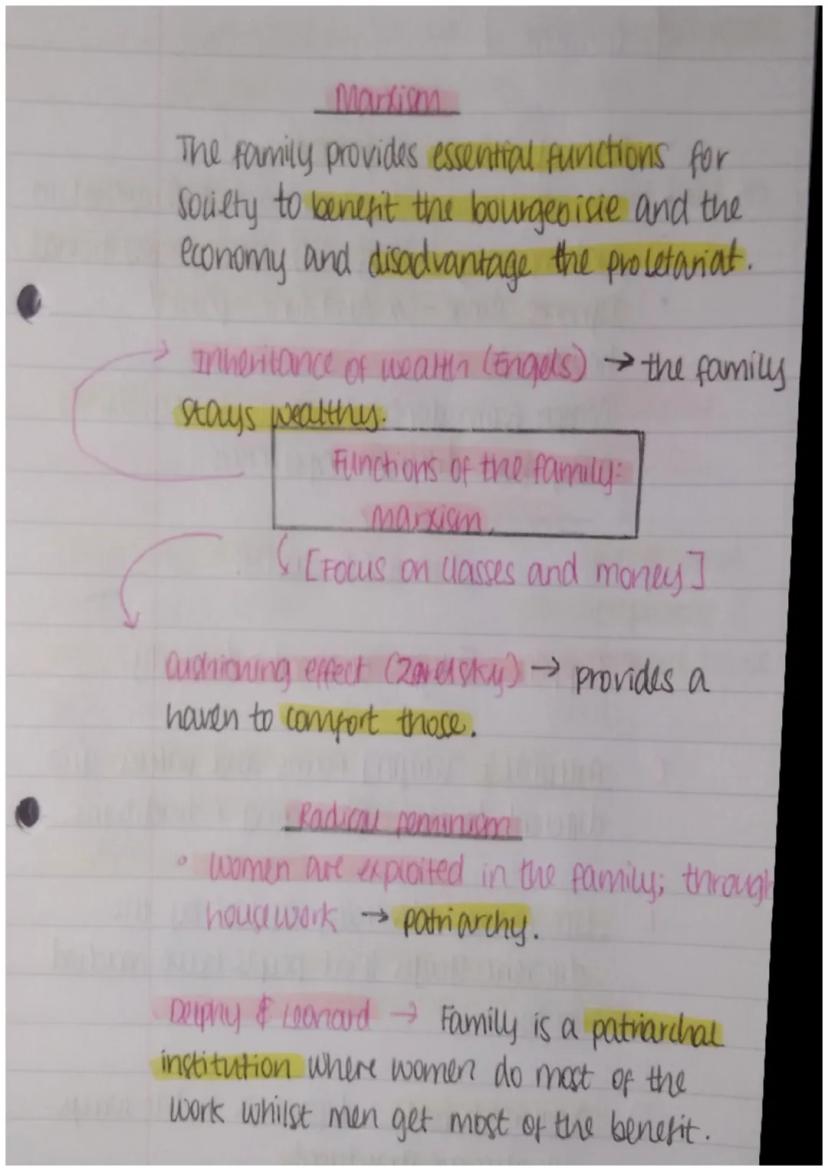 Marxism
The family provides essential functions for
society to benefit the bourgeoisie and the
economy and disadvantage the proletariat.
Inheritance of wealth (Engels) → the family
stays wealthy.
Functions of the family:
marxism.
[Focus on classes and money]
Cushioning effect (Zaretsky) → provides a
haven to comfort those.
Radical feminism
• Women are exploited in the family; through
housework → patriarchy.
Delphy & Leonard → Family is a patriarchal
institution where women do most of the
work whilst men get most of the benefit.